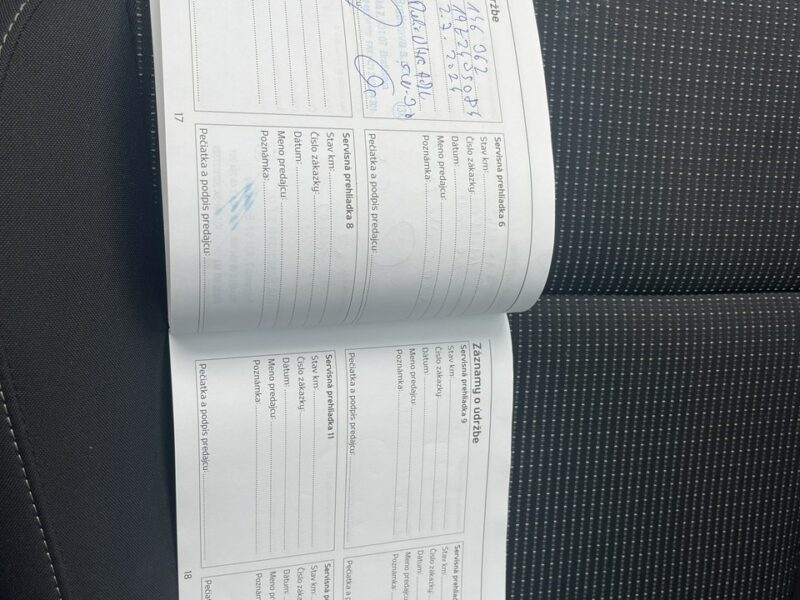 ržbe
146 062
2.7. 2024
Servisná prehliadka 6
Stav km:
Číslo zákazky:
Dátum:
Meno predajcu:
Poznámka:
Pečiatka a podpis predajcu:
Servisná prehliadka 8
Stav km:
Číslo zákazky:
Dátum:
Meno predajcu:
Poznámka:
Pečiatka a podpis predajcu:
17
Záznamy o údržbe
Servisná prehliadka 9
Stav km:
Číslo zákazky:
Dátum:
Meno predajcu:
Poznámka:
Pečiatka a podpis predajcu:
Servisná prehliadka 11
Stav km:
Číslo zákazky:
Dátum:
Meno predajcu:
Poznámka:
Pečiatka a podpis predajcu:
Servisná prehliad
Stav km:
Číslo zákazky:
Dátum:
Meno predajcu:
Poznámka:
Pečiatka a p
Servisná pre
Stav km:
Číslo zák
Dátum:
Meno pr
Poznám
Pečiat
18